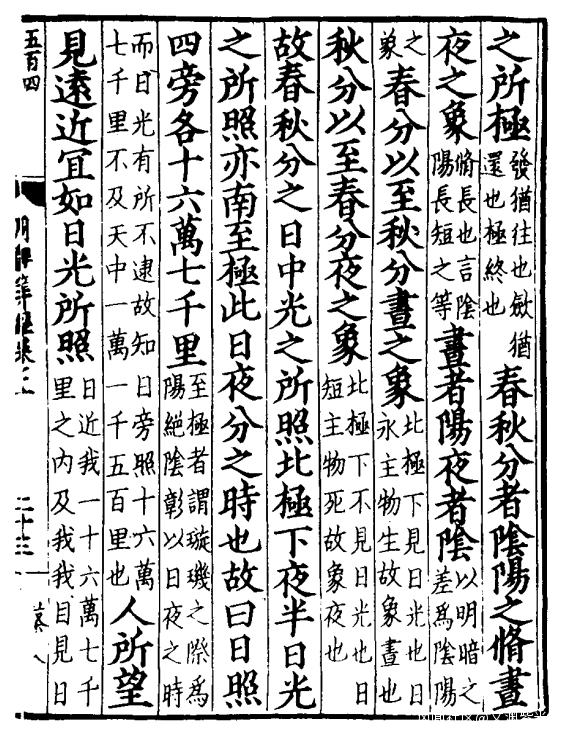 之所極發猶往也斂猶還也極終也春秋分者陰陽之脩晝
夜之象脩長也言陰陽長短之等晝者陽夜者陰以明暗之差爲陰陽
之象春分以至秋分晝之象北極下見日光也日永主物生故象晝也
秋分以至春分夜之象北極下不見日光也日短主物死故象夜也
故春秋分之日中光之所照北極下夜半日光
之所照亦南至極此日夜分之時也故曰日照
四旁各十六萬七千里至極者謂璇璣之際爲陽絕陰彰以日夜之時
而日光有所不逮故知日旁照十六萬七千里不及天中一萬一千五百里也人所望
見遠近冝如日光所照日近我一十六萬七千里之内及我我目見日
五百四
二十三